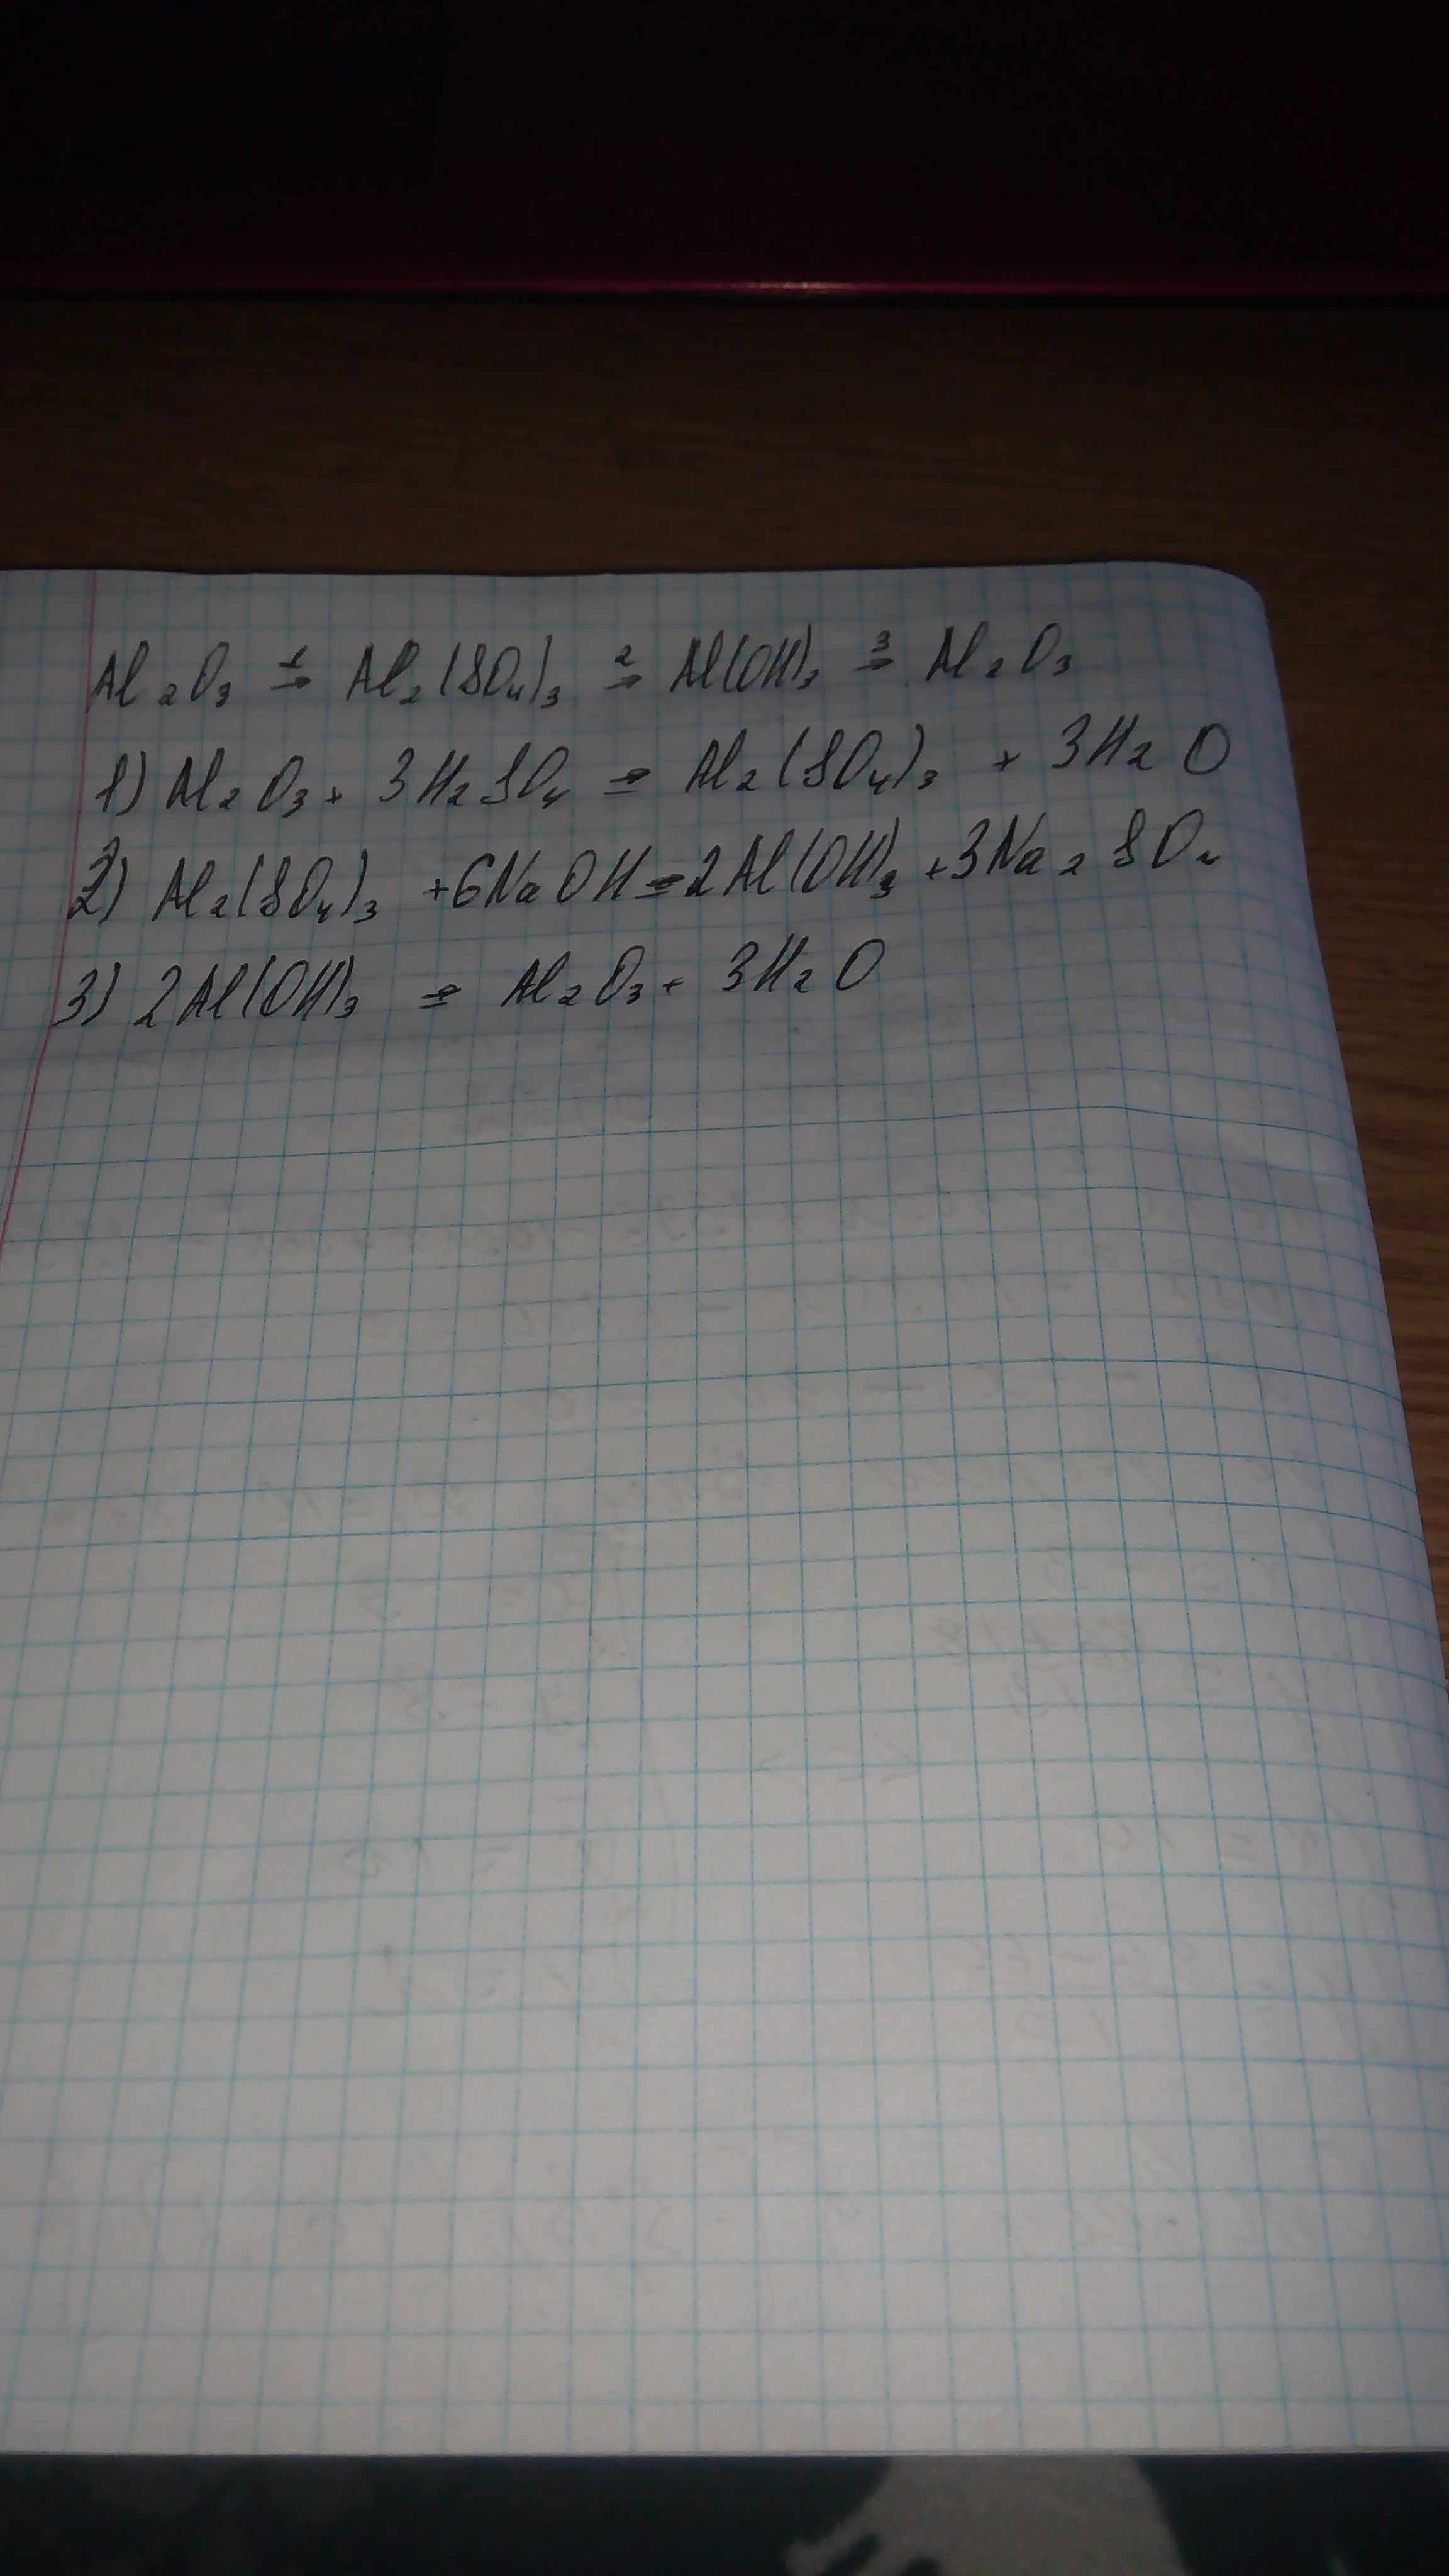 Al₂O₃ →¹ Al₂(SO₄)₃ →² Al(OH)₃ →³ Al₂O₃
1) Al₂O₃ + 3H₂SO₄ = Al₂(SO₄)₃ + 3H₂O
2) Al₂(SO₄)₃ + 6NaOH = 2Al(OH)₃ + 3Na₂SO₄
3) 2Al(OH)₃ = Al₂O₃ + 3H₂O